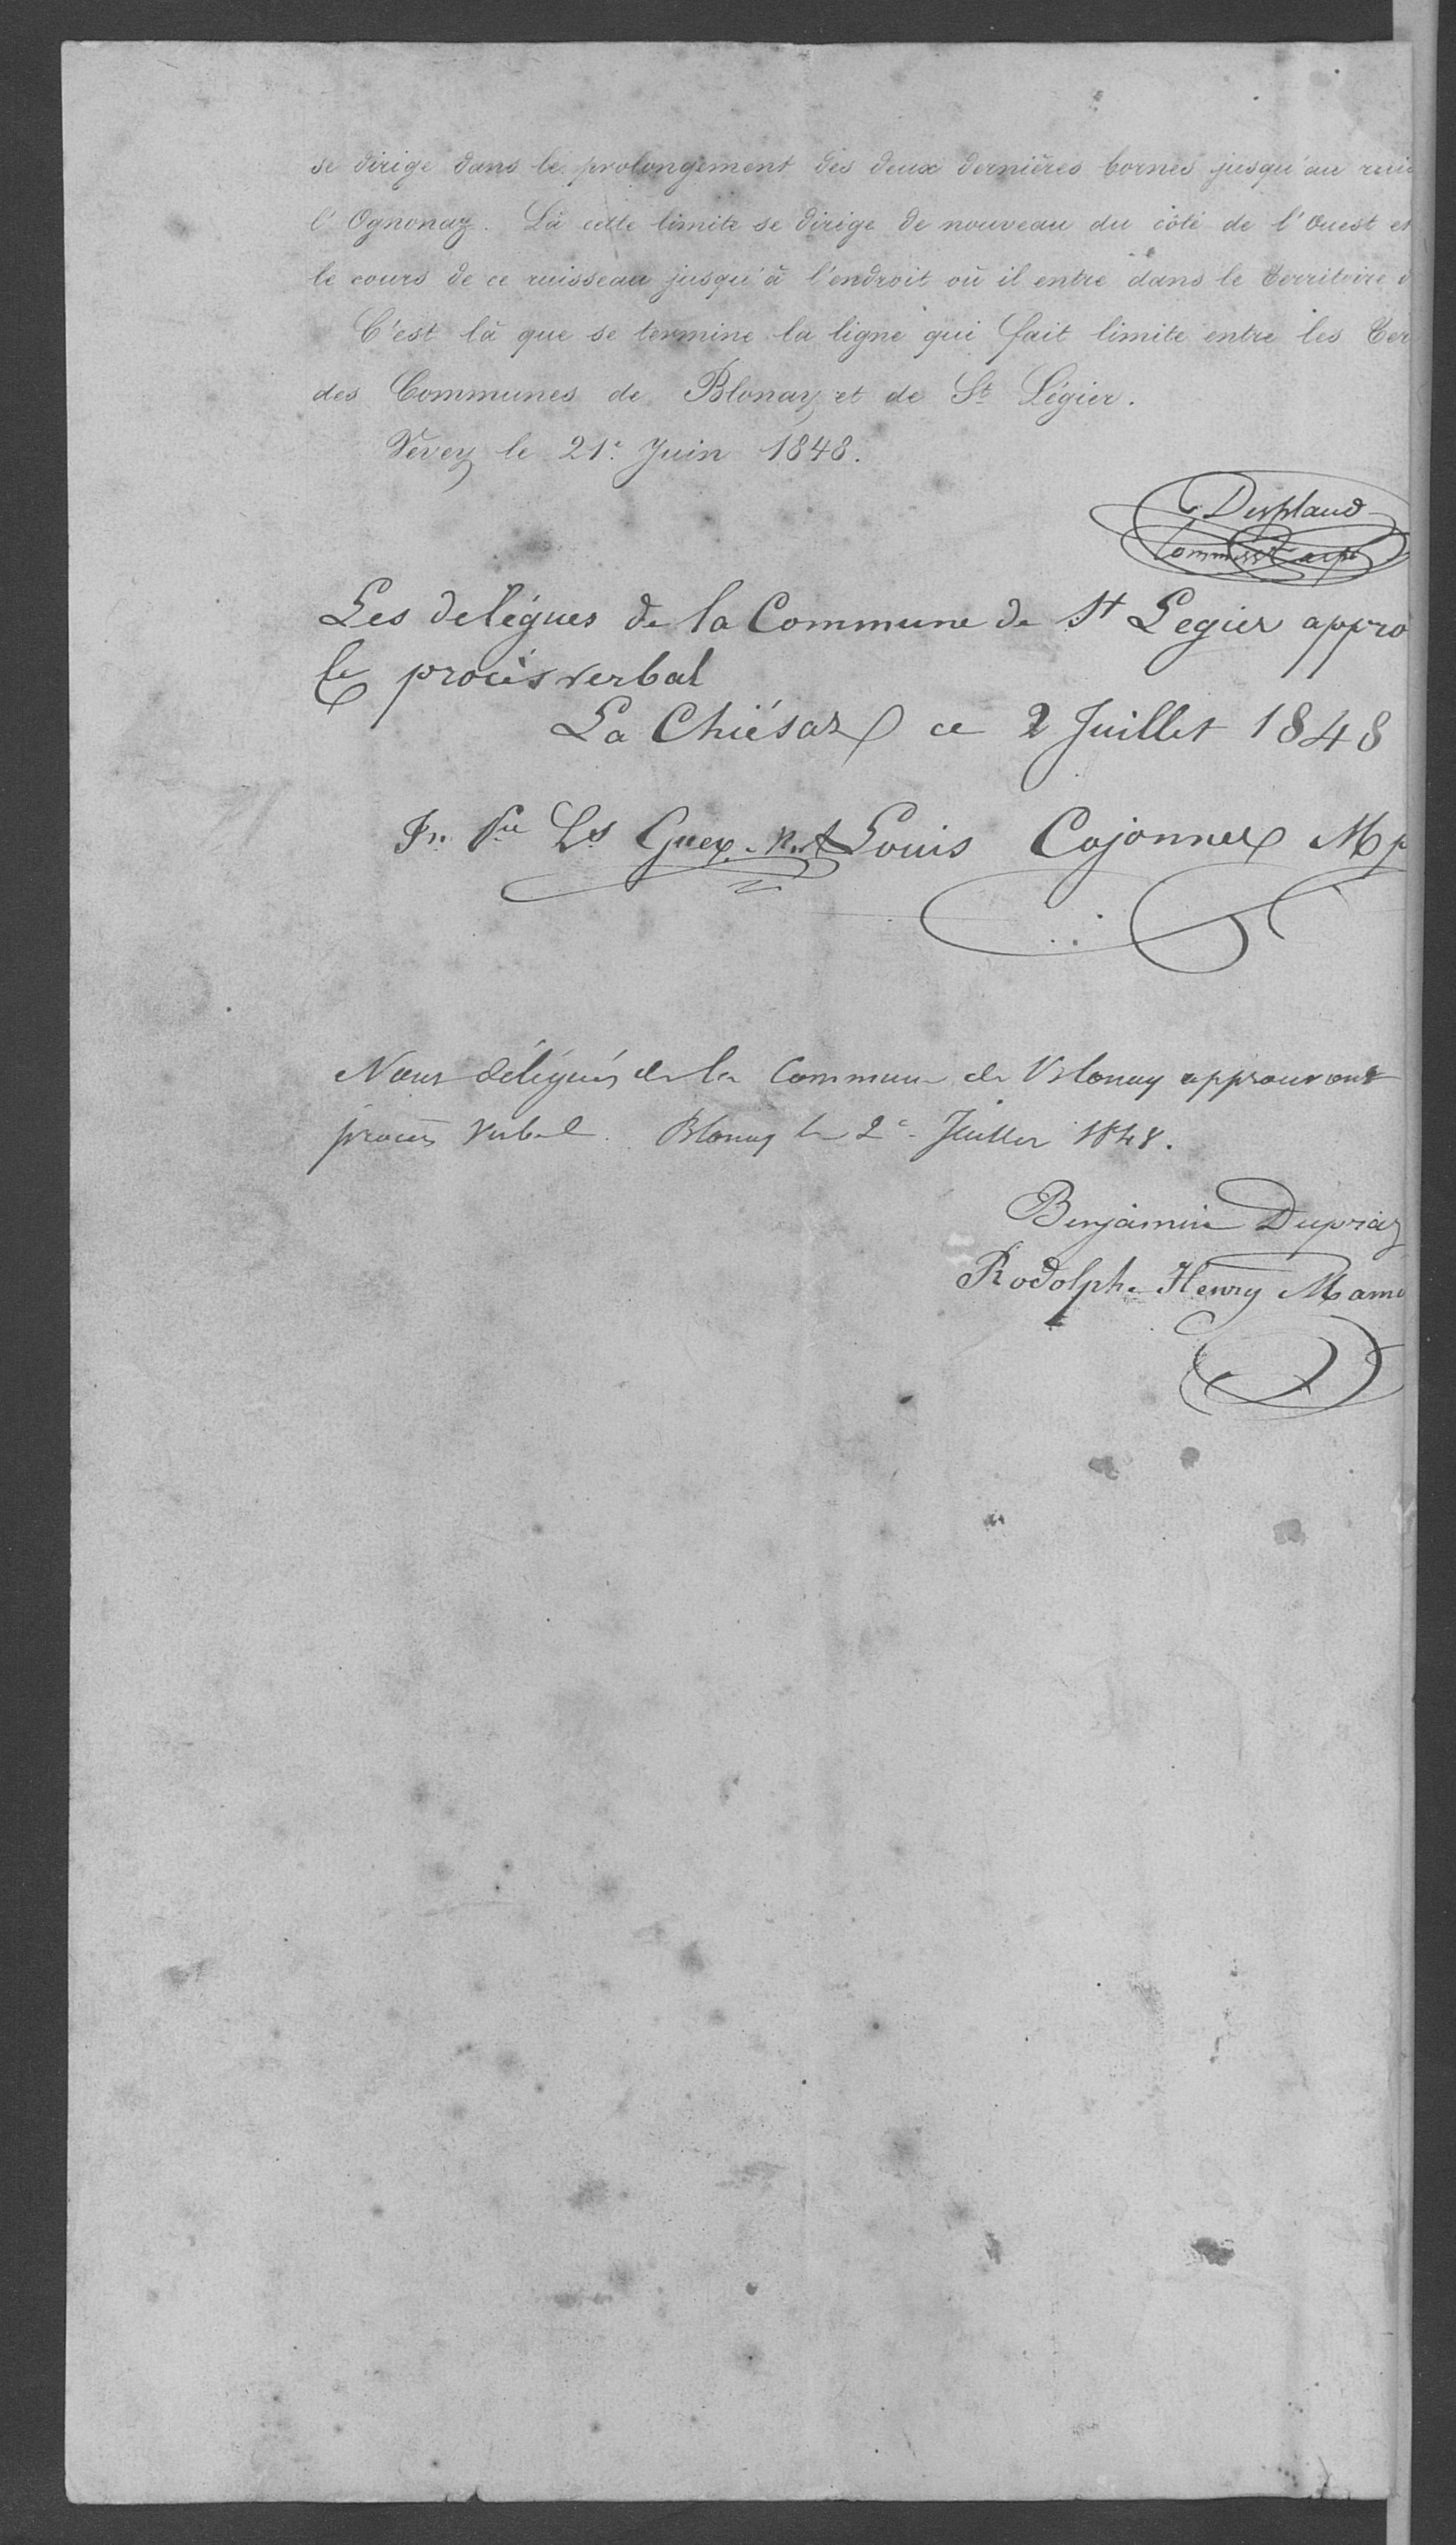 se dirige dans le prolongement des deux dernières bornes jusqu'au ruis
l'Ognonaz. Là cette limite se dirige de nouveau du côté de l'Ouest et
le cours de ce ruisseau jusqu'à l'endroit où il entre dans le territoire d
C'est là que se termine la ligne qui fait limite entre les Ter
des Communes de Blonay et de St Légier.
Vevey le 21e Juin 1848.
Desplaud
Commiss
Les délégues de la Commune de St Legier appro
le procès verbal
La Chiésaz ce 2 Juillet 1848
Ls Guex Louis Cojonnex Mp
Nous délégués de la Commune de Blonay approuvons
procès verbal. Blonay le 2e Juillet 1848.
Benjamin Dupraz
Rodolphe Henry Mamo